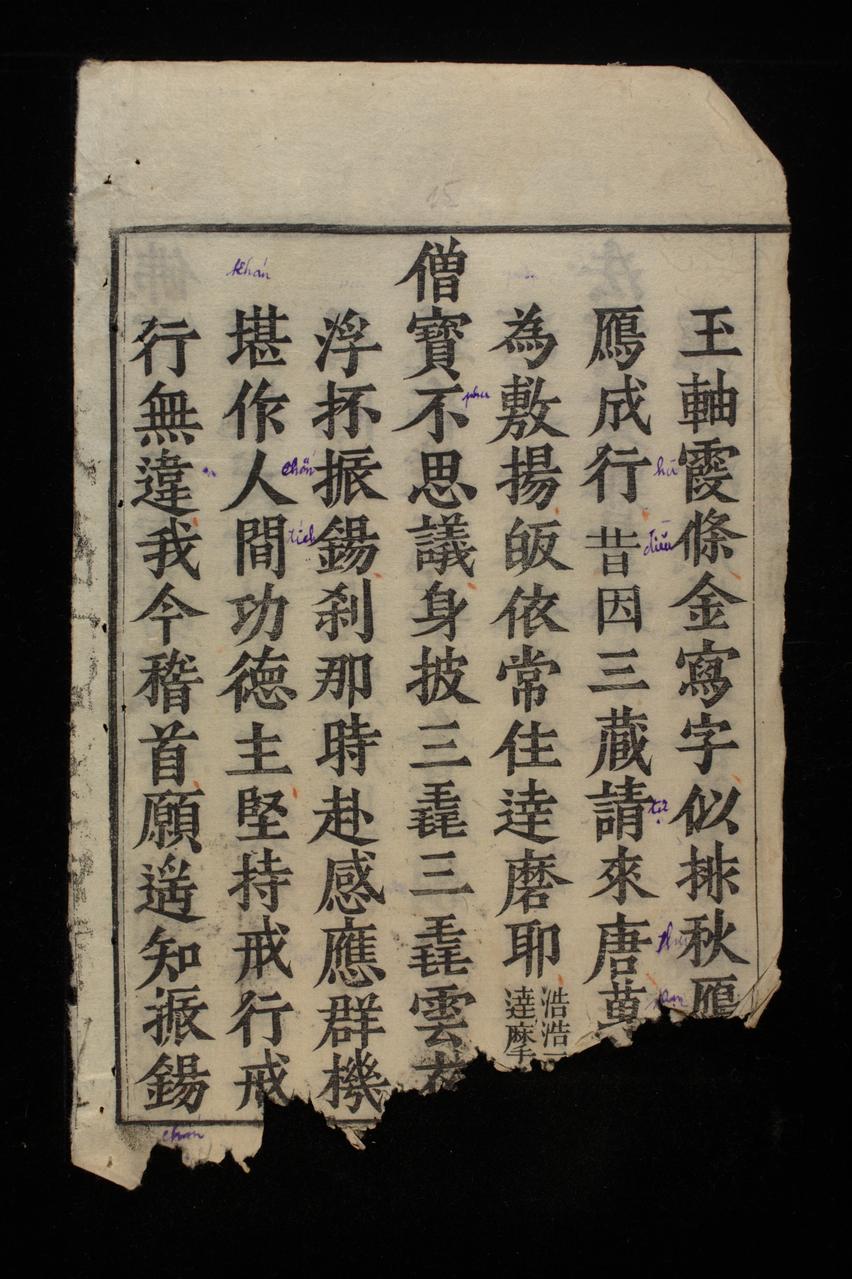 玉軸霞條金寫字似排秋鴈
鴈成行昔因三藏請來唐萬
為敷揚皈依常住達磨耶
浩浩
達麻
僧寶不思議身披三毳三毳雲衣
浮抔振錫刹那時赴感應群機
堪作人間功德主堅持戒行戒
行無違我今稽首願遥知振錫
khán
phu
chấn
tích
hà
điều
tự